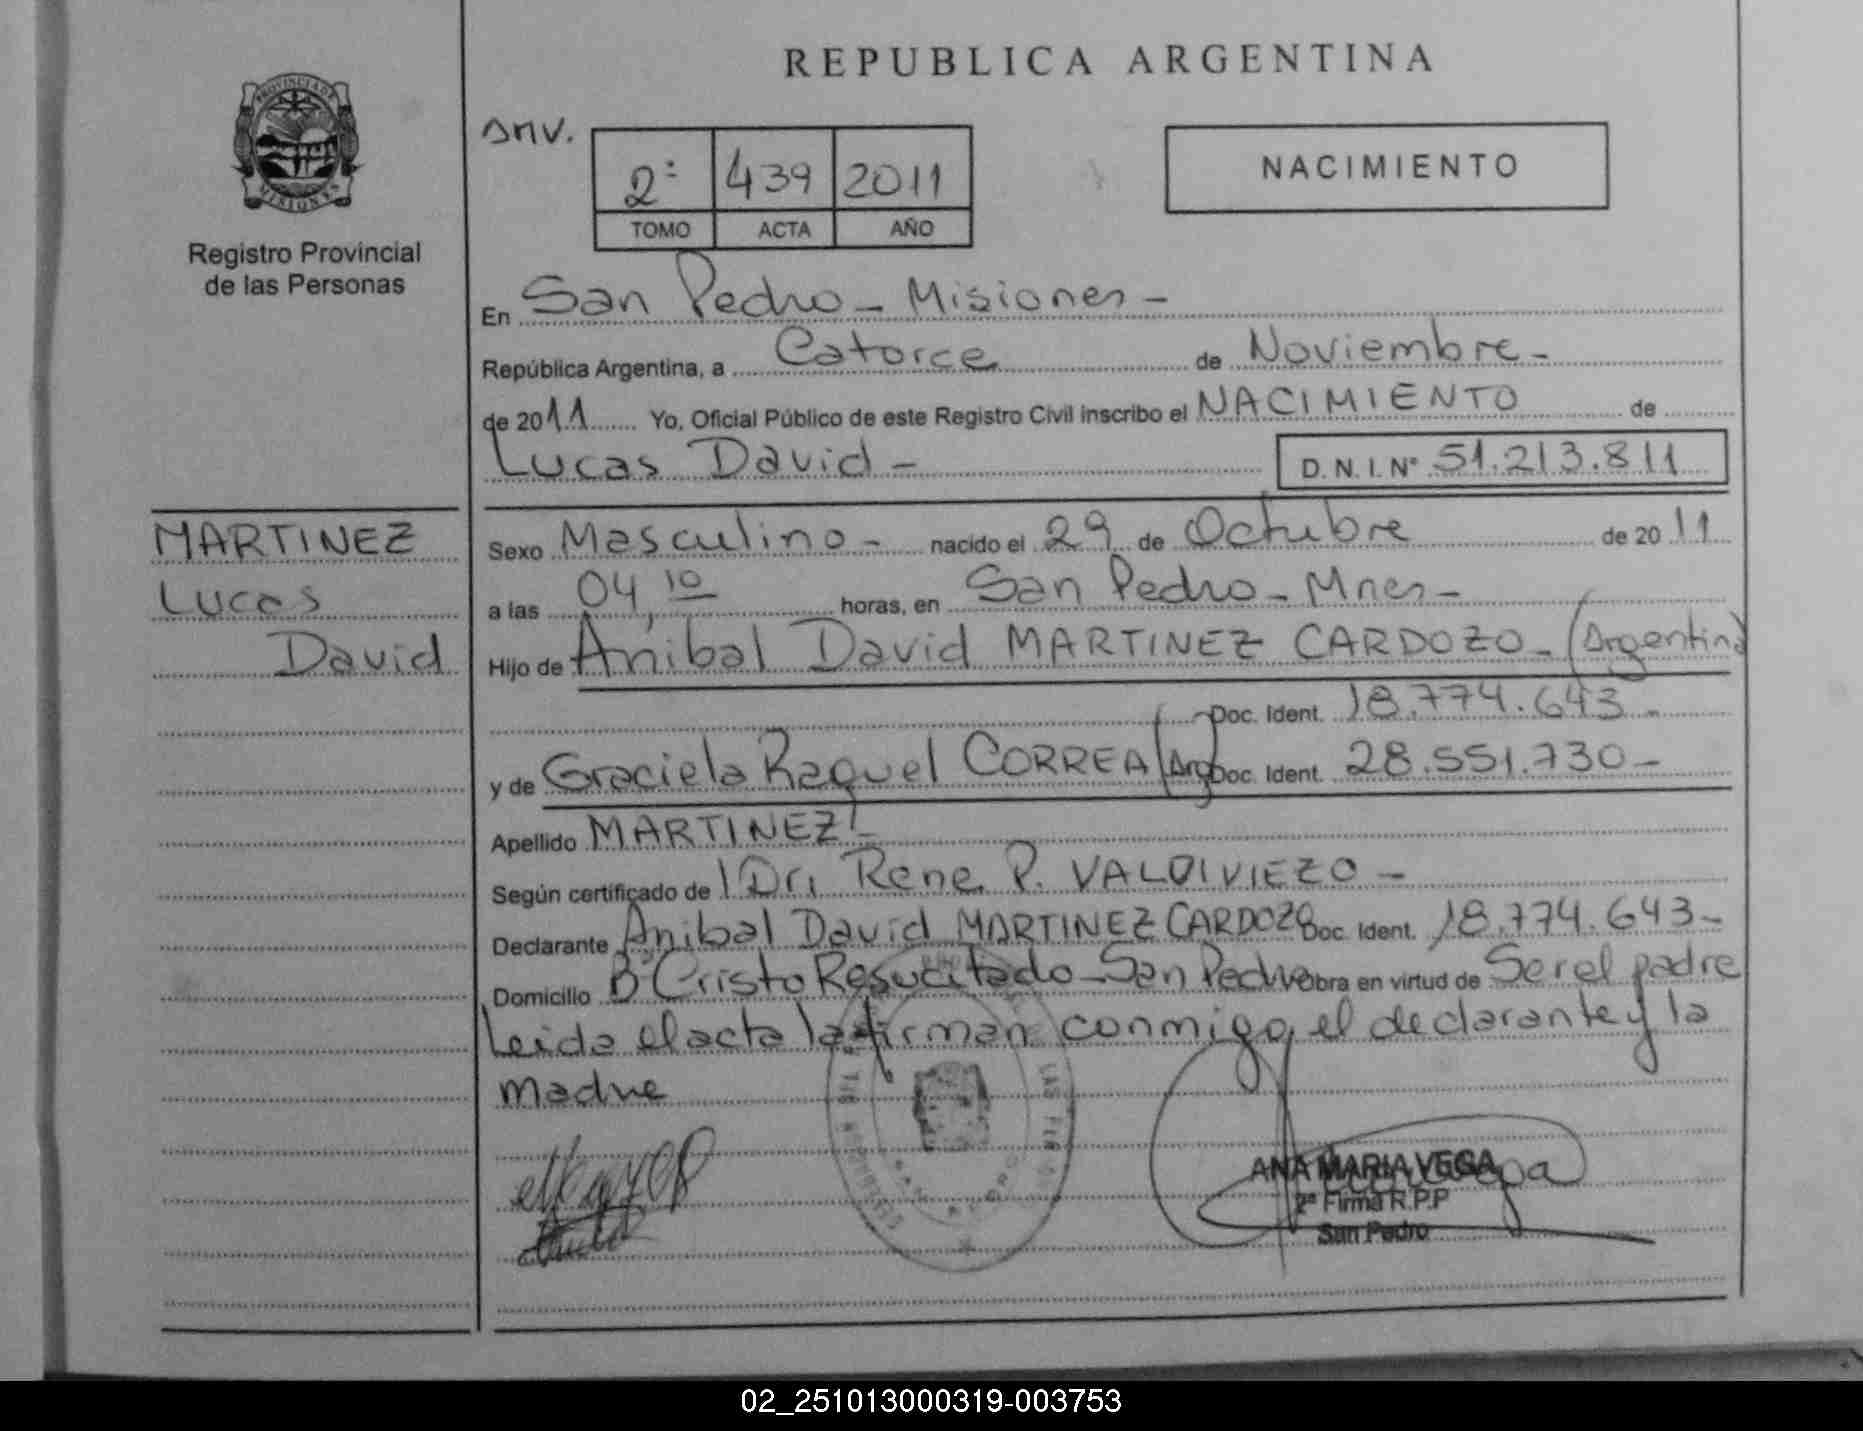 REPUBLICA ARGENTINA
PROVINCIA DE
MISIONES
Registro Provincial
de las Personas
2º 439 2011
TOMO ACTA AÑO
NACIMIENTO
En San Pedro - Misiones -
República Argentina, a Catorce de Noviembre -
de 2011 Yo, Oficial Público de este Registro Civil inscribo el NACIMIENTO de
Lucas David - D.N.I.Nº 51.213.811
MARTINEZ
Lucas
David
Sexo Masculino - nacido el 29 de Octubre de 2011
a las 04,10 horas, en San Pedro - Mnes -
Hijo de Aníbal David MARTINEZ CARDOZO - (Argentina)
Doc. Ident. 18.774.643 -
y de Graciela Raquel CORREA (Arg) Doc. Ident. 28.551.730 -
Apellido MARTINEZ -
Según certificado de Dr. Rene P. VALDIVIEZO -
Declarante Anibal David MARTINEZ CARDOZO Doc. Ident. 18.774.643 -
Domicilio Bº Cristo Resucitado - San Pedro obra en virtud de Ser el padre
Leida el acta la firman conmigo, el declarante y la
madre
ANA MARIA VEGA
2ª Firma R.P.P
San Pedro
02_251013000319-003753